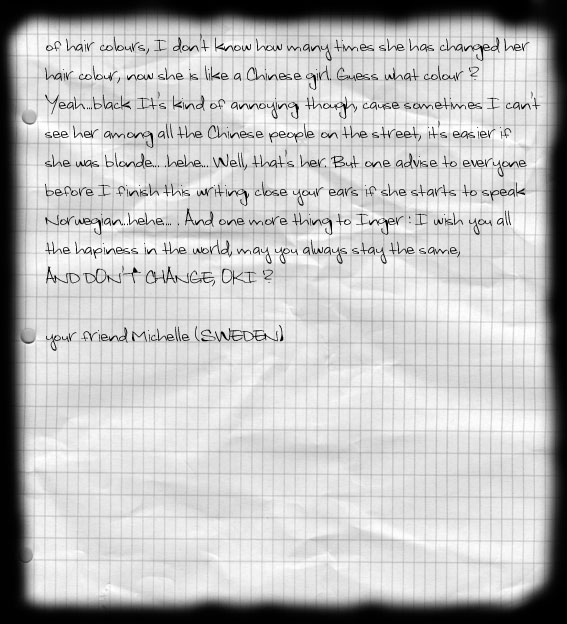 of hair colours, I don't know how many times she has changed her
hair colour, now she is like a Chinese girl. Guess what colour ?
Yeah...black. It's kind of annoying though, cause sometimes I can't
see her among all the Chinese people on the street, it's easier if
she was blonde....hehe... Well, that's her. But one advise to everyone
before I finish this writing, close your ears if she starts to speak
Norwegian...hehe... . And one more thing to Inger : I wish you all
the hapiness in the world, may you always stay the same,
AND DON'T CHANGE, OKI ?
your friend Michelle (SWEDEN)